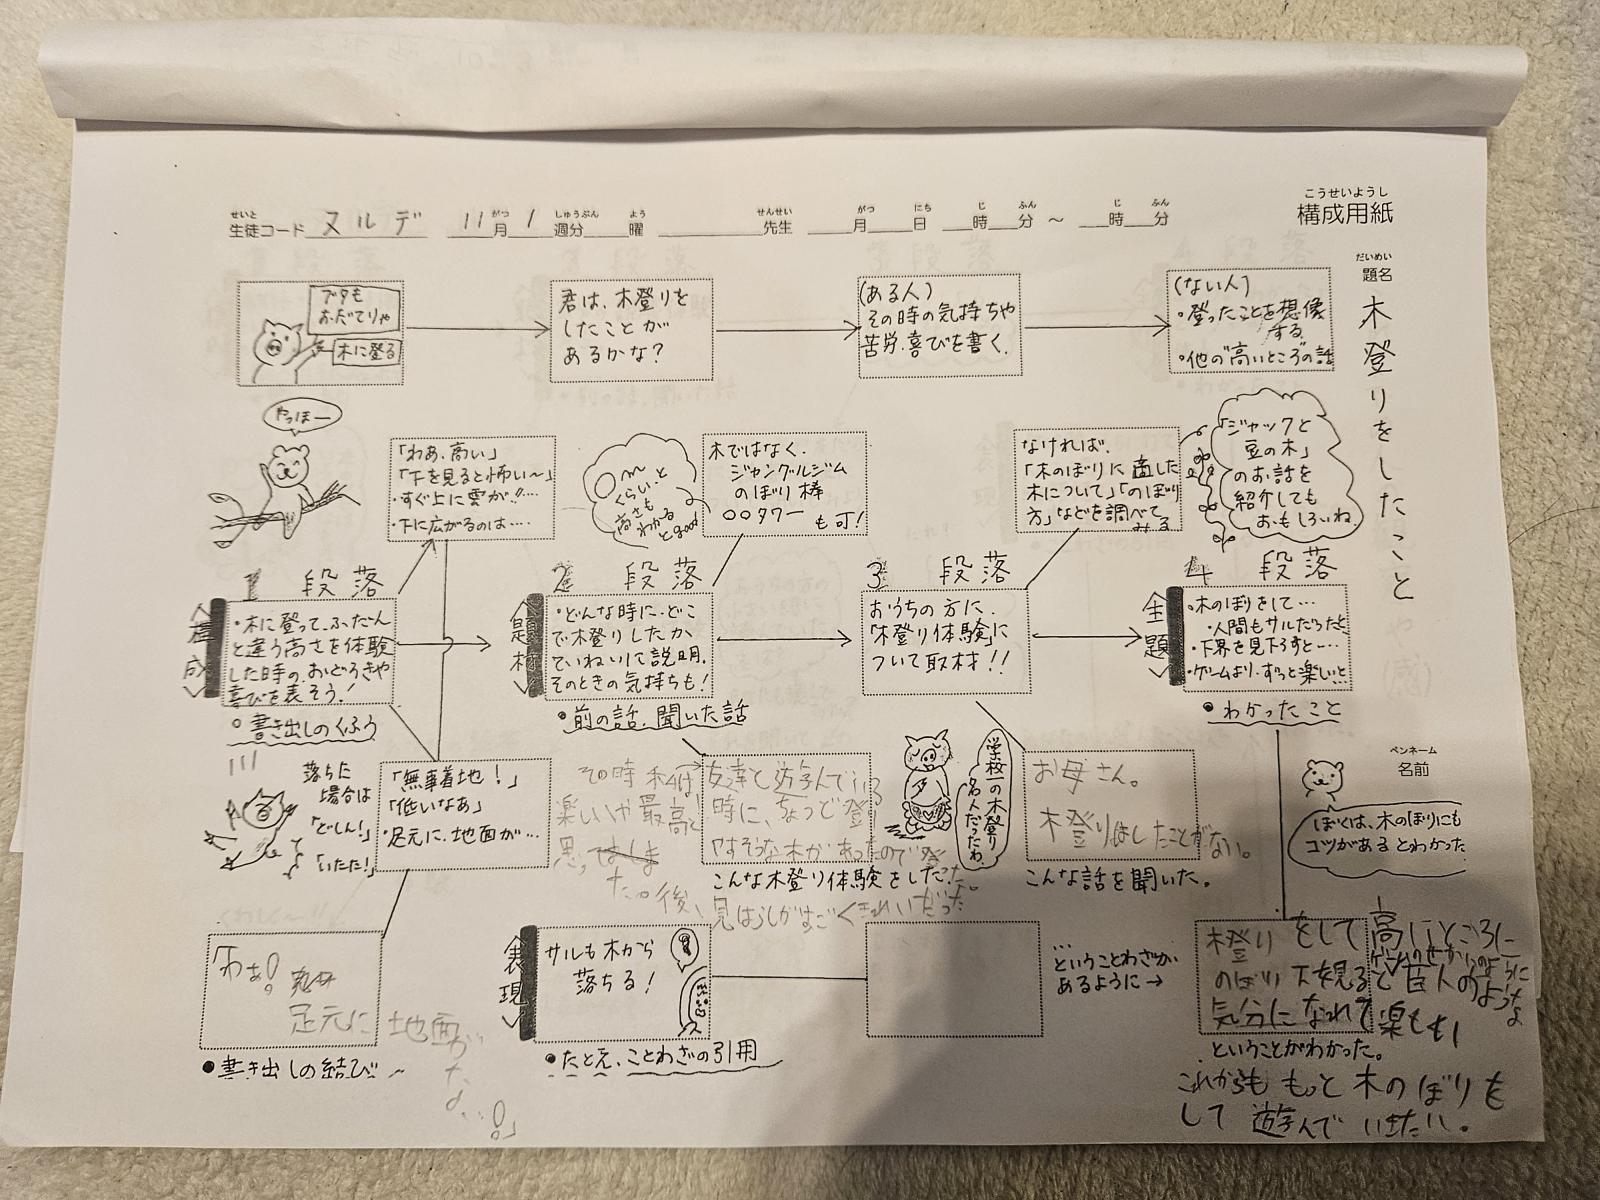 こうせいようし
構成用紙
せいと がつ しゅうぶん よう せんせい がつ にち じ ふん じ ふん
生徒コード ヌルデ 11月 1 週分 曜 先生 月 日 時 分 ～ 時 分
だいめい
題名
木登りをしたこと
ブタも
おだてりゃ
木に登る
君は、木登りを
したことが
あるかな？
(ある人)
その時の気持ちや
苦労、喜びを書く。
(ない人)
・登ったことを想像
する
・他の"高いところ"の話
やっほー
「わあ、高い」
「下を見ると怖い～」
・すぐ上に雲が!!…
・下に広がるのは……
〇m
くらい、と
高さも
わかる
とgood
木ではなく、
ジャングルジム
のぼり棒
〇〇タワー
も可！
なければ、
「木のぼりに適した
木について」「のぼり
方」などを調べて
みる
「ジャックと
豆の木」
のお話を
紹介しても
おもしろいね。
1 段落
構成
・木に登って、ふだん
と違う高さを体験
した時の、おどろきや
喜びを表そう！
○書き出しのくふう
2 段落
題材
・どんな時に、どこ
で木登りしたか、
ていねいに説明。
そのときの気持ちも！
●前の話、聞いた話
3 段落
おうちの方に、
「木登り体験」に
ついて取材！！
4 段落
主題
・木のぼりをして…
・人間もサルだったと
・下界を見下ろすと…
・ゲームより、ずっと楽しいと
●わかったこと
落ちた
場合は
「どしん！」
「いたた！」
「無事着地！」
「低いなあ」
・足元に、地面が…
その時私は
楽しいや最高と
思っ
た。後、
友達と遊んでいる
時に、ちょうど登り
やすそうな木があったので登
こんな木登り体験をした。
見はらしがすごくきれいだった
学校一の木登り
名人だったわ。
お母さん。
木登りはしたことがない。
こんな話を聞いた。
ペンネーム
名前
ぼくは、木のぼりにも
コツがあるとわかった
「わぁ！
足元に地面が
な…！」
●書き出しの結び
表現
サルも木から
落ちる！
●たとえ、ことわざの引用
…
ということわざが
あるように→
木登りをして高いところに
のぼり下を見ると巨人のような
気分になれて楽しい
ということがわかった。
これからももっと木のぼりを
して遊んでいきたい。